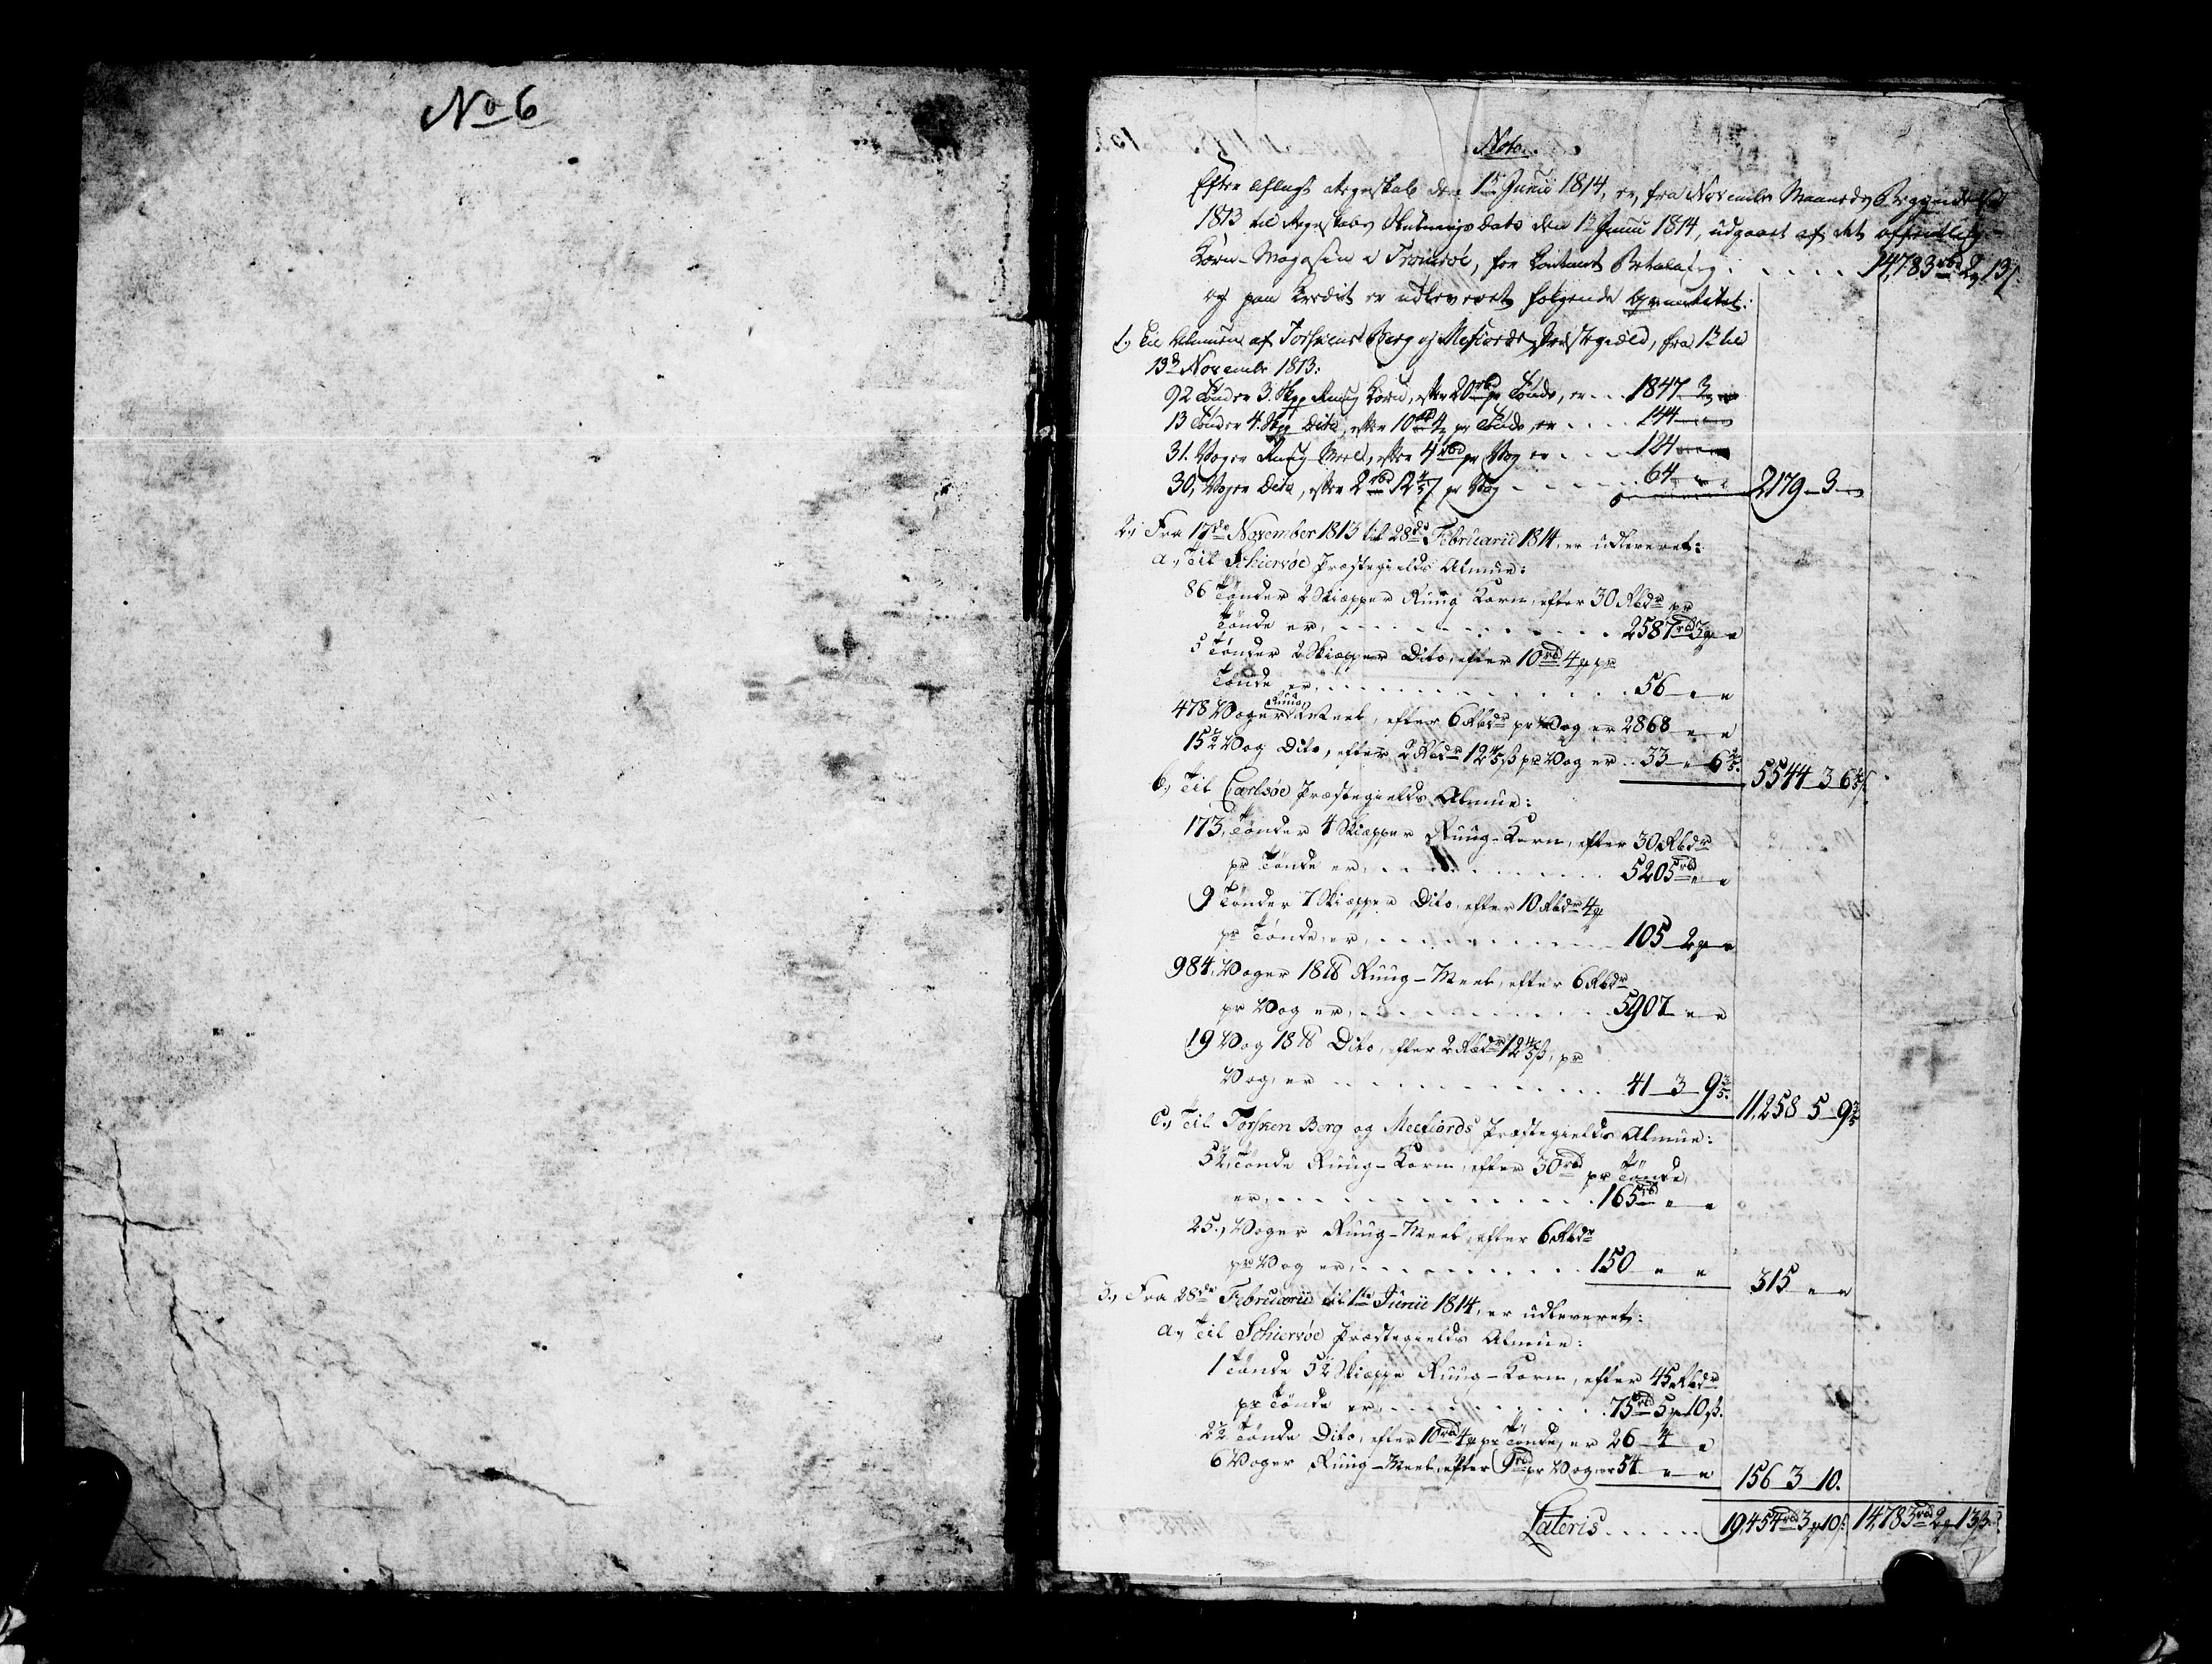 No 6
Nota.
Efter aflagt Regnskab den 1te Junii 1814, er, fra November Maaneds Begyndelse
1813 til Regnskabs Slutnings Dato den 1te Junii 1814, udgaaet af det offentlige
Korn-Magasin i Tromsøe, for Contant Betaling . . . . . 14,783 rbd 2 13 ß.
og paa Credit er udleveret følgende Qvantitet:
1, Til Almuen af Torskens Berg og Mefiords Præstegield, fra 1te til
13de November 1813:
92 Tønder 3 Skpp Ruug Korn, efter 20 rbd pr Tønde, er . . . 1847 3 "
13 Tønder 4 Skp Dito, efter 10 rbd 4 pr Tønde, er . . . . 144 " "
31. Voger Ruug Meel, efter 4 rbd pr Vog er . . . 124 " "
30, Voger Dito, efter 2 rbd 12 4/5 ß pr Vog . . . . . 64 " " 2179 3 "
2, Fra 17de November 1813 til 28de Februarii 1814, er udleveret:
a, Til Schiervøe Præstegields Almue:
86 Tønder 2 Skiæpper Ruug Korn, efter 30 Rbdr pr
Tønde er, . . . . . . . . . . 2587 rbd 3 "
5 Tønder 2 Skiæpper Dito, efter 10 rbd 4 pr
Tønde er, . . . . . . . . . . 56 " "
478 Voger Ruug Meel, efter 6 Rbdr pr Vog er 2868 " "
15 1/2 Vog Dito, efter 2 Rbdr 12 4/5 ß pr Vog er . . 33 " 6 2/5. 5544 3 6 2/5 ß.
b, Til Carlsøe Præstegields Almue:
173, Tønder 4 Skiæpper Ruug-Korn, efter 30 Rbdr
pr Tønde er, . . . . . . . . . . 5205 rbd " "
9 Tønder 7 Skiæpper Dito, efter 10 Rbdr 4
pr Tønde, er, . . . . . . . . . . 105 2 "
984, Voger 18 ℔ Ruug-Meel, efter 6 Rbdr
pr Vog er, . . . . . . . . . . 5907 " "
19 Vog 18 ℔ Dito, efter 2 Rbdr 12 4/5 ß, pr
Vog, er . . . . . . . . . . 41 3 9 3/5. 11,258 5 9 3/5
c, Til Torsken Berg og Mefiords Præstegields Almue:
5 1/2, Tønde Ruug-Korn, efter 30 rbd pr Tønde,
er, . . . . . . . . . . 165 rbd " "
25., Voger Ruug-Meel, efter 6 Rbdr
pr Vog er, . . . . . . . . . . 150 " " 315 " "
3, Fra 28de Februarii til 1te Junii 1814, er udleveret:
a, Til Schiervøe Præstegields Almue:
1 Tønde 5 1/2 Skiæppe Ruug-Korn, efter 45 Rbdr
pr Tønde er, . . . . . . . . . . 75 rbd 5 10 ß.
2 1/2 Tønde Dito, efter 10 rbd 4 pr Tønde, er 26 4 "
6 Voger Ruug-Meel, efter 9 rbd pr Vog, er 54 " " 156 3 10.
Lateris . . . . . 19,454 rbd 3 10 ß. 14,783 rbd 2 13 ß.